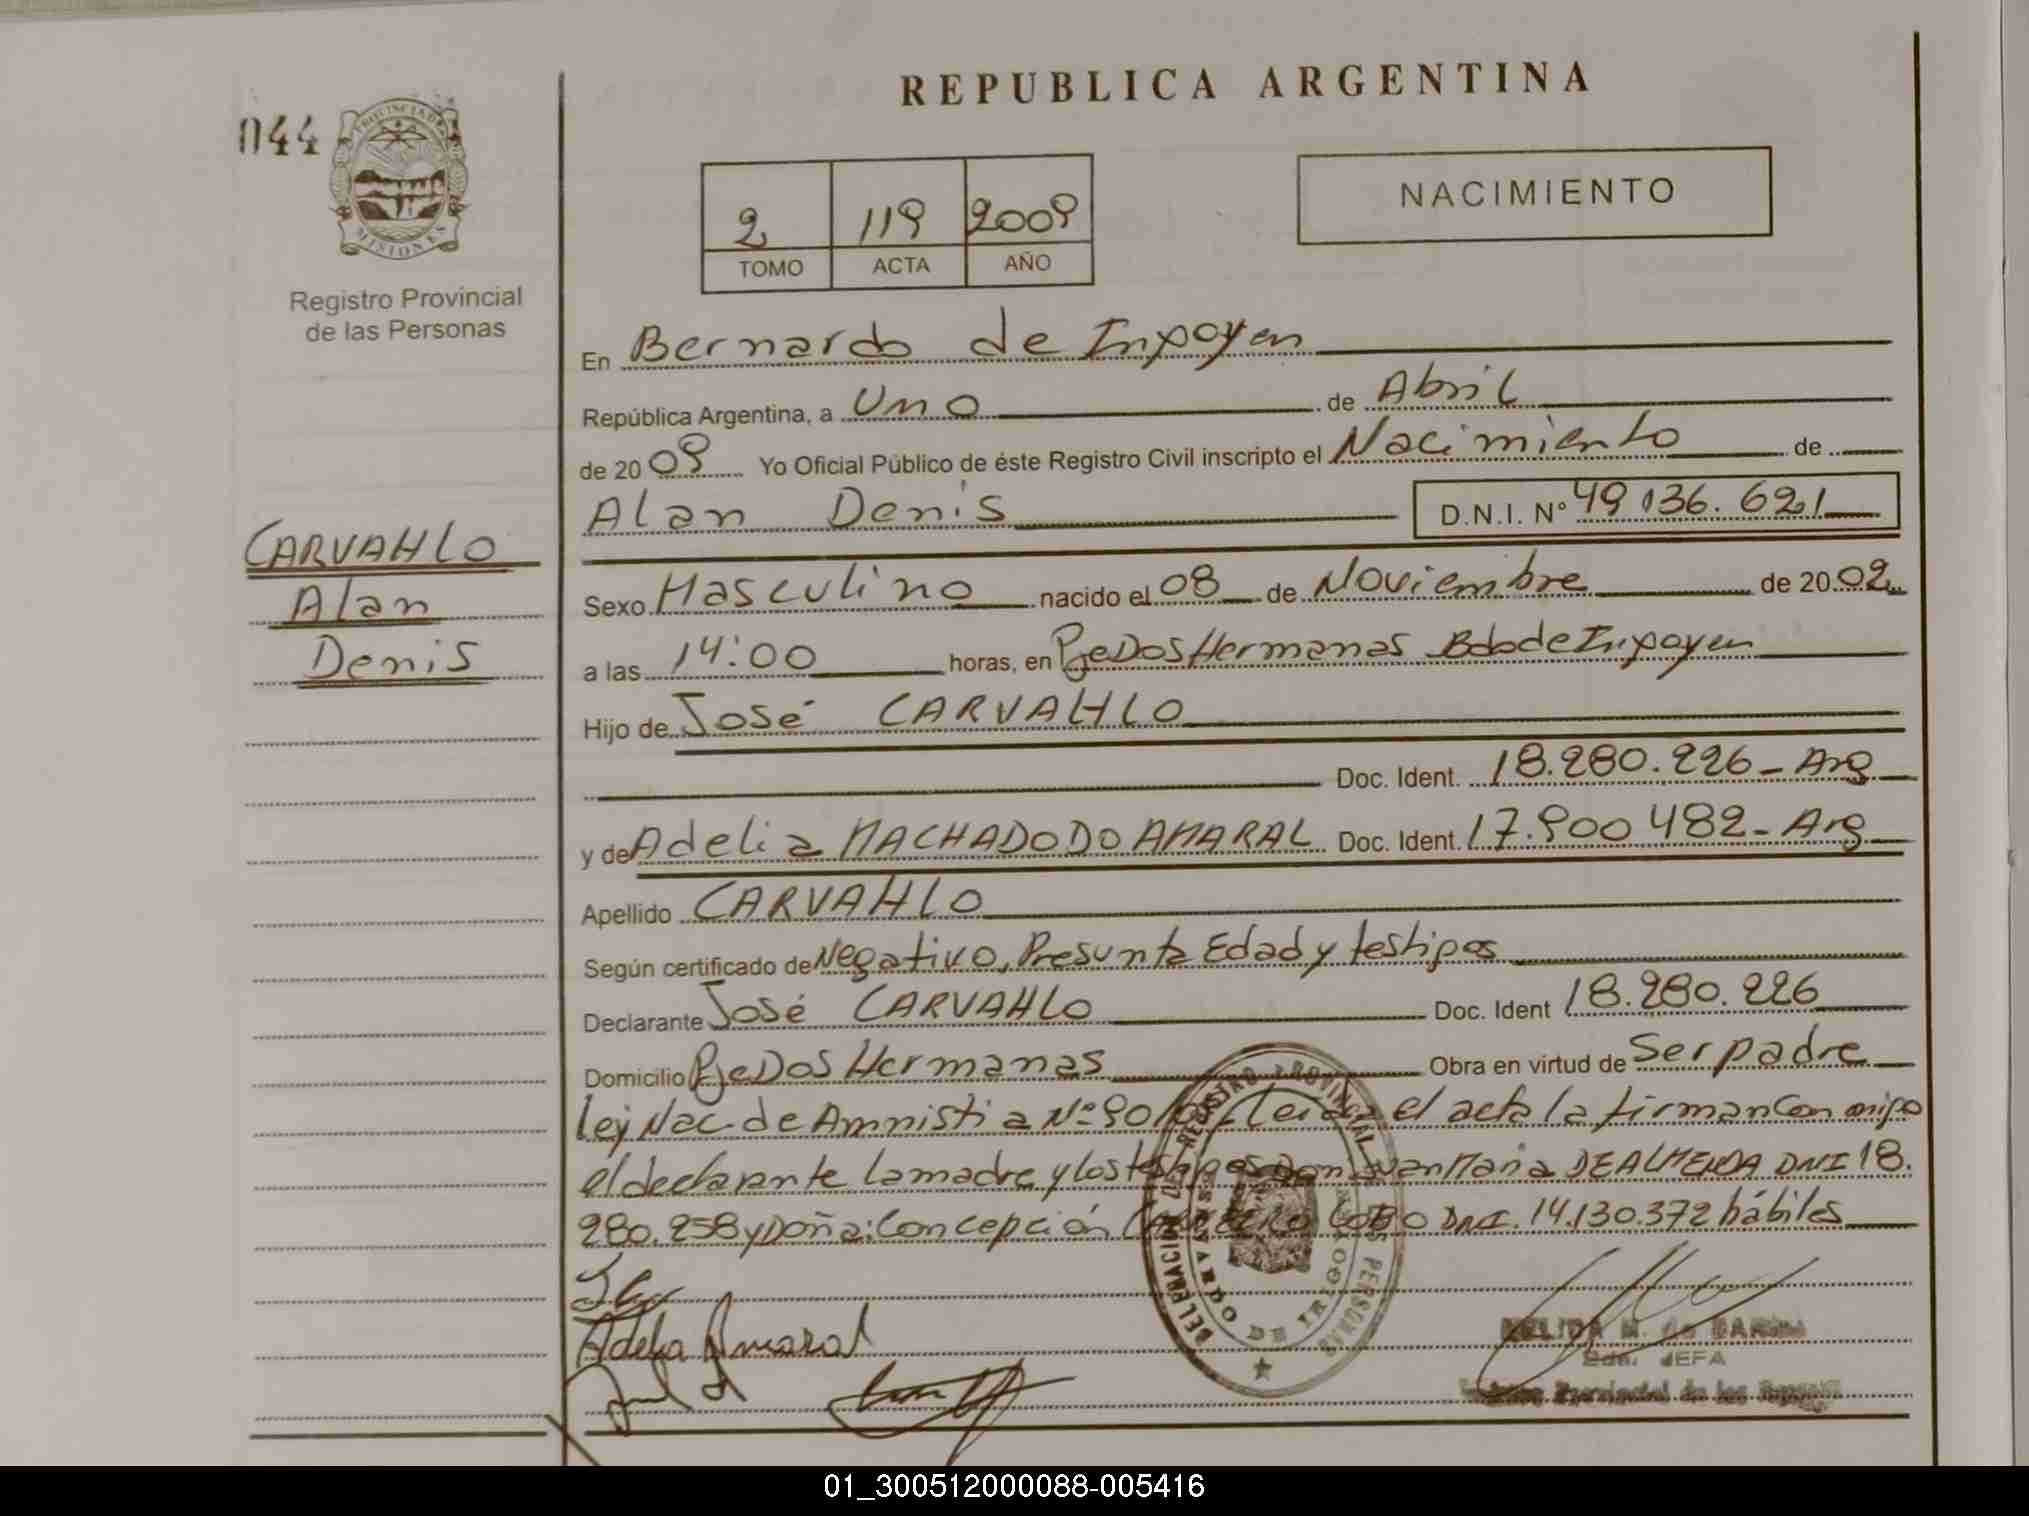 REPUBLICA ARGENTINA
044
PROVINCIA DE MISIONES
Registro Provincial
de las Personas
2 119 2009
TOMO ACTA AÑO
NACIMIENTO
En Bernardo de Irigoyen
República Argentina, a Uno de Abril
de 2009 Yo Oficial Público de éste Registro Civil inscripto el Nacimiento de
Alan Denis D.N.I. N° 49.136.621
CARVAHLO
Alan
Denis
Sexo Masculino nacido el 08 de Noviembre de 2002
a las 14:00 horas, en PjeDosHermanas BdodeIrigoyen
Hijo de José CARVAHLO
Doc. Ident. 18.280.226 - Arg
y de Adelia MACHADO DO AMARAL Doc. Ident. 17.900 482 - Arg
Apellido CARVAHLO
Según certificado de Negativo, Presunta Edad y testigos
Declarante José CARVAHLO Doc. Ident 18.280.226
Domicilio PjeDos Hermanas Obra en virtud de Ser padre
ley Nac. de Amnistia N° Leida el acta la firman Con migo
el declarante la madre y los testigos Don Juan Maria DEALMEIDA DNI 18.
280.258 y Doña: Concepción LOBO DNI. 14.130.372 hábiles
Adelia Amaral
REGISTRO PROVINCIAL DE LAS PERSONAS
DELEGACION
BERNARDO DE IRIGOYEN
NELIDA M. de
JEFA
Provincial de las
01_300512000088-005416